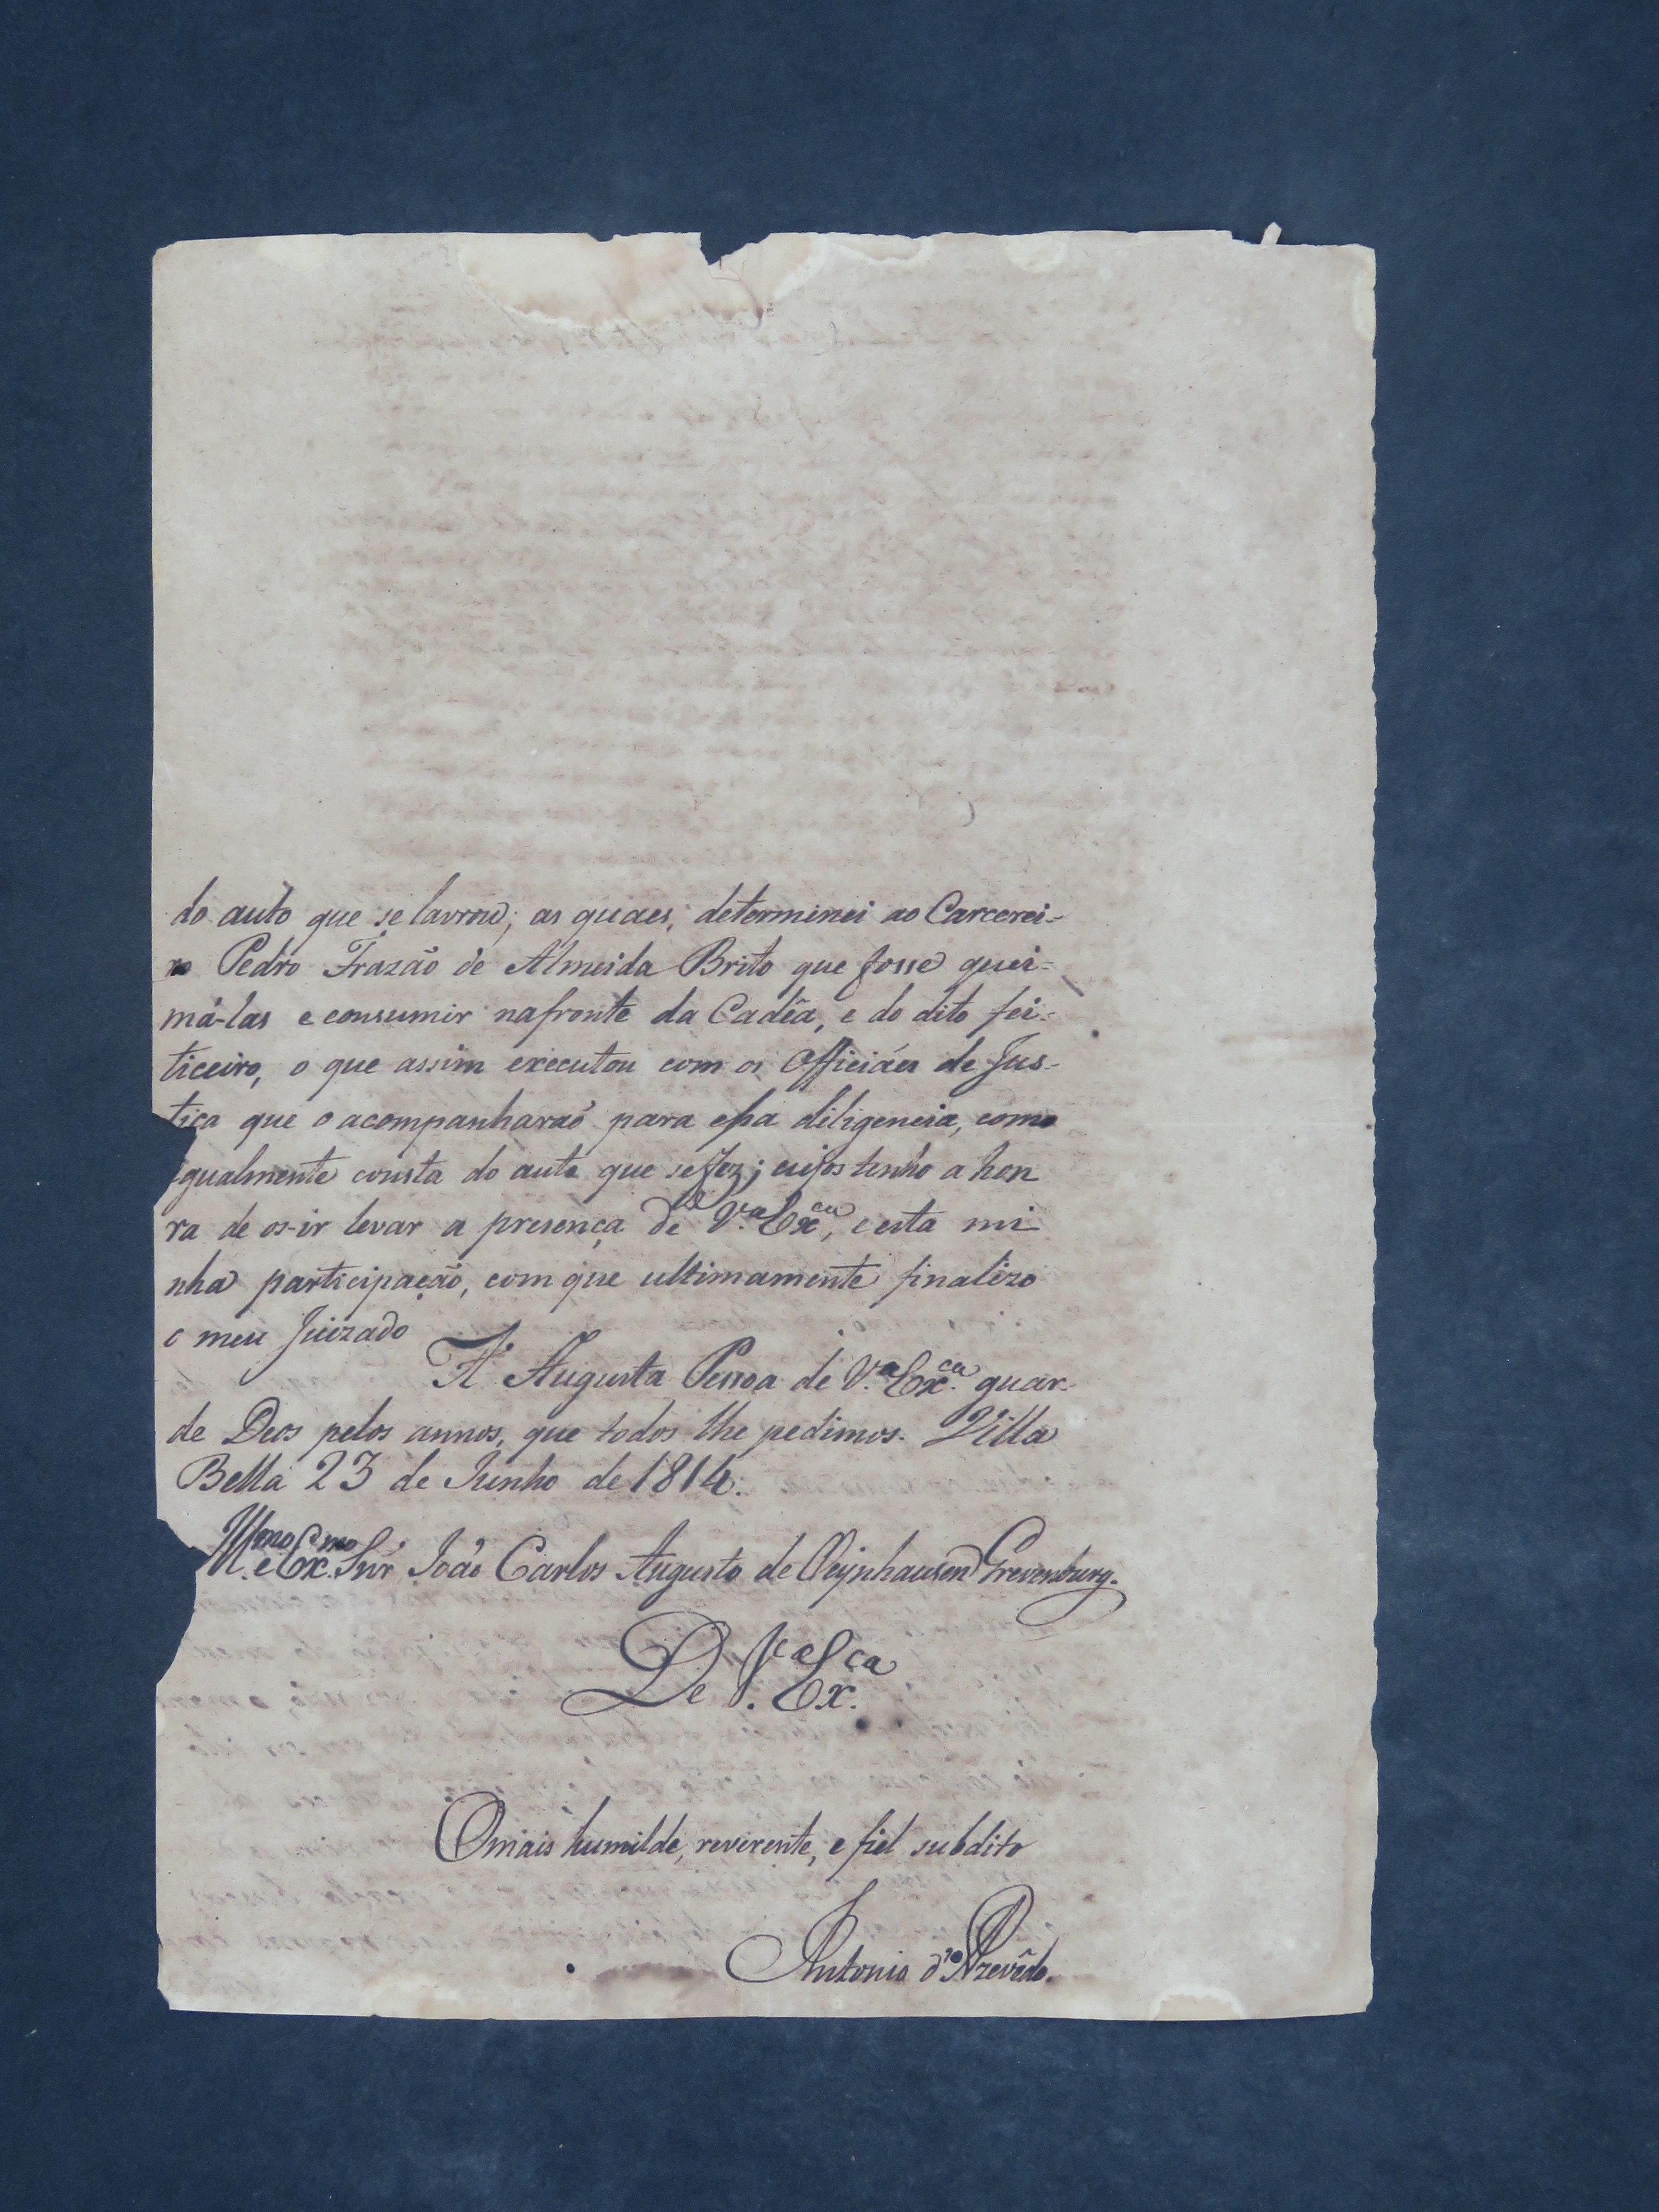 do auto que se lavrou; as quaes, determinei ao Carcerei-
ro Pedro Frazão de Almeida Brito que fosse quei-
má-las e consumir nafronte da Cadêa, e do dito fei-
ticeiro, o que assim executou com os Officiáes de Jus-
tiça que o acompanharaõ para essa diligencia, como
igualmente consta do auto que sefez; cujos tenho a hon
ra de os-ir levar a presença de V.ª Ex.cia, e esta mi
nha participação, com que ultimamente finalizo
o meu Juizado
A' Augusta Pessoa de V.ª Ex.cia guar-
de Deos pelos annos, que todos lhe pedimos. Villa
Bella 23 de Junho de 1814.
Ill.mo e Ex.mo Snr' João Carlos Augusto de Oeÿnhausen Grevenburg.
De V.ª Ex.ca
Omais humilde, reverente, e fiel subdito
Antonio d'Azevêdo.